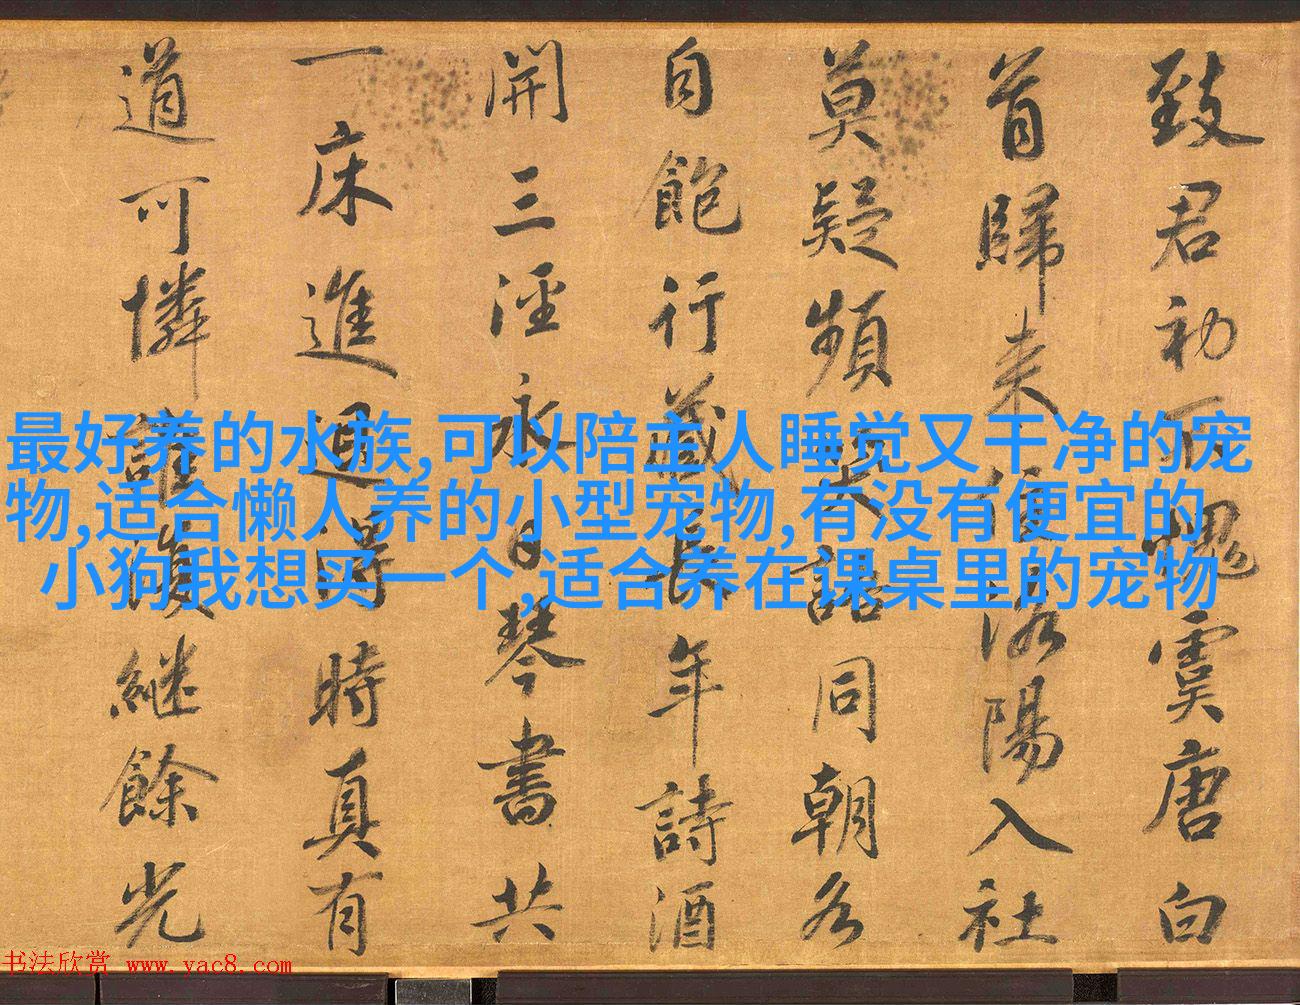 致君初不愧虞唐白
首歸来洛陽入社
莫疑頻笑語同朝各
自飽行藏長年詩酒
開三涇永日琴書共
一床進退得時真有
道可憐誰復繼餘光
最好养的水族,可以陪主人睡觉又干净的宠
物,适合懒人养的小型宠物,有没有便宜的
小狗我想买一个,适合养在课桌里的宠物
书法欣赏 www.yac8.com